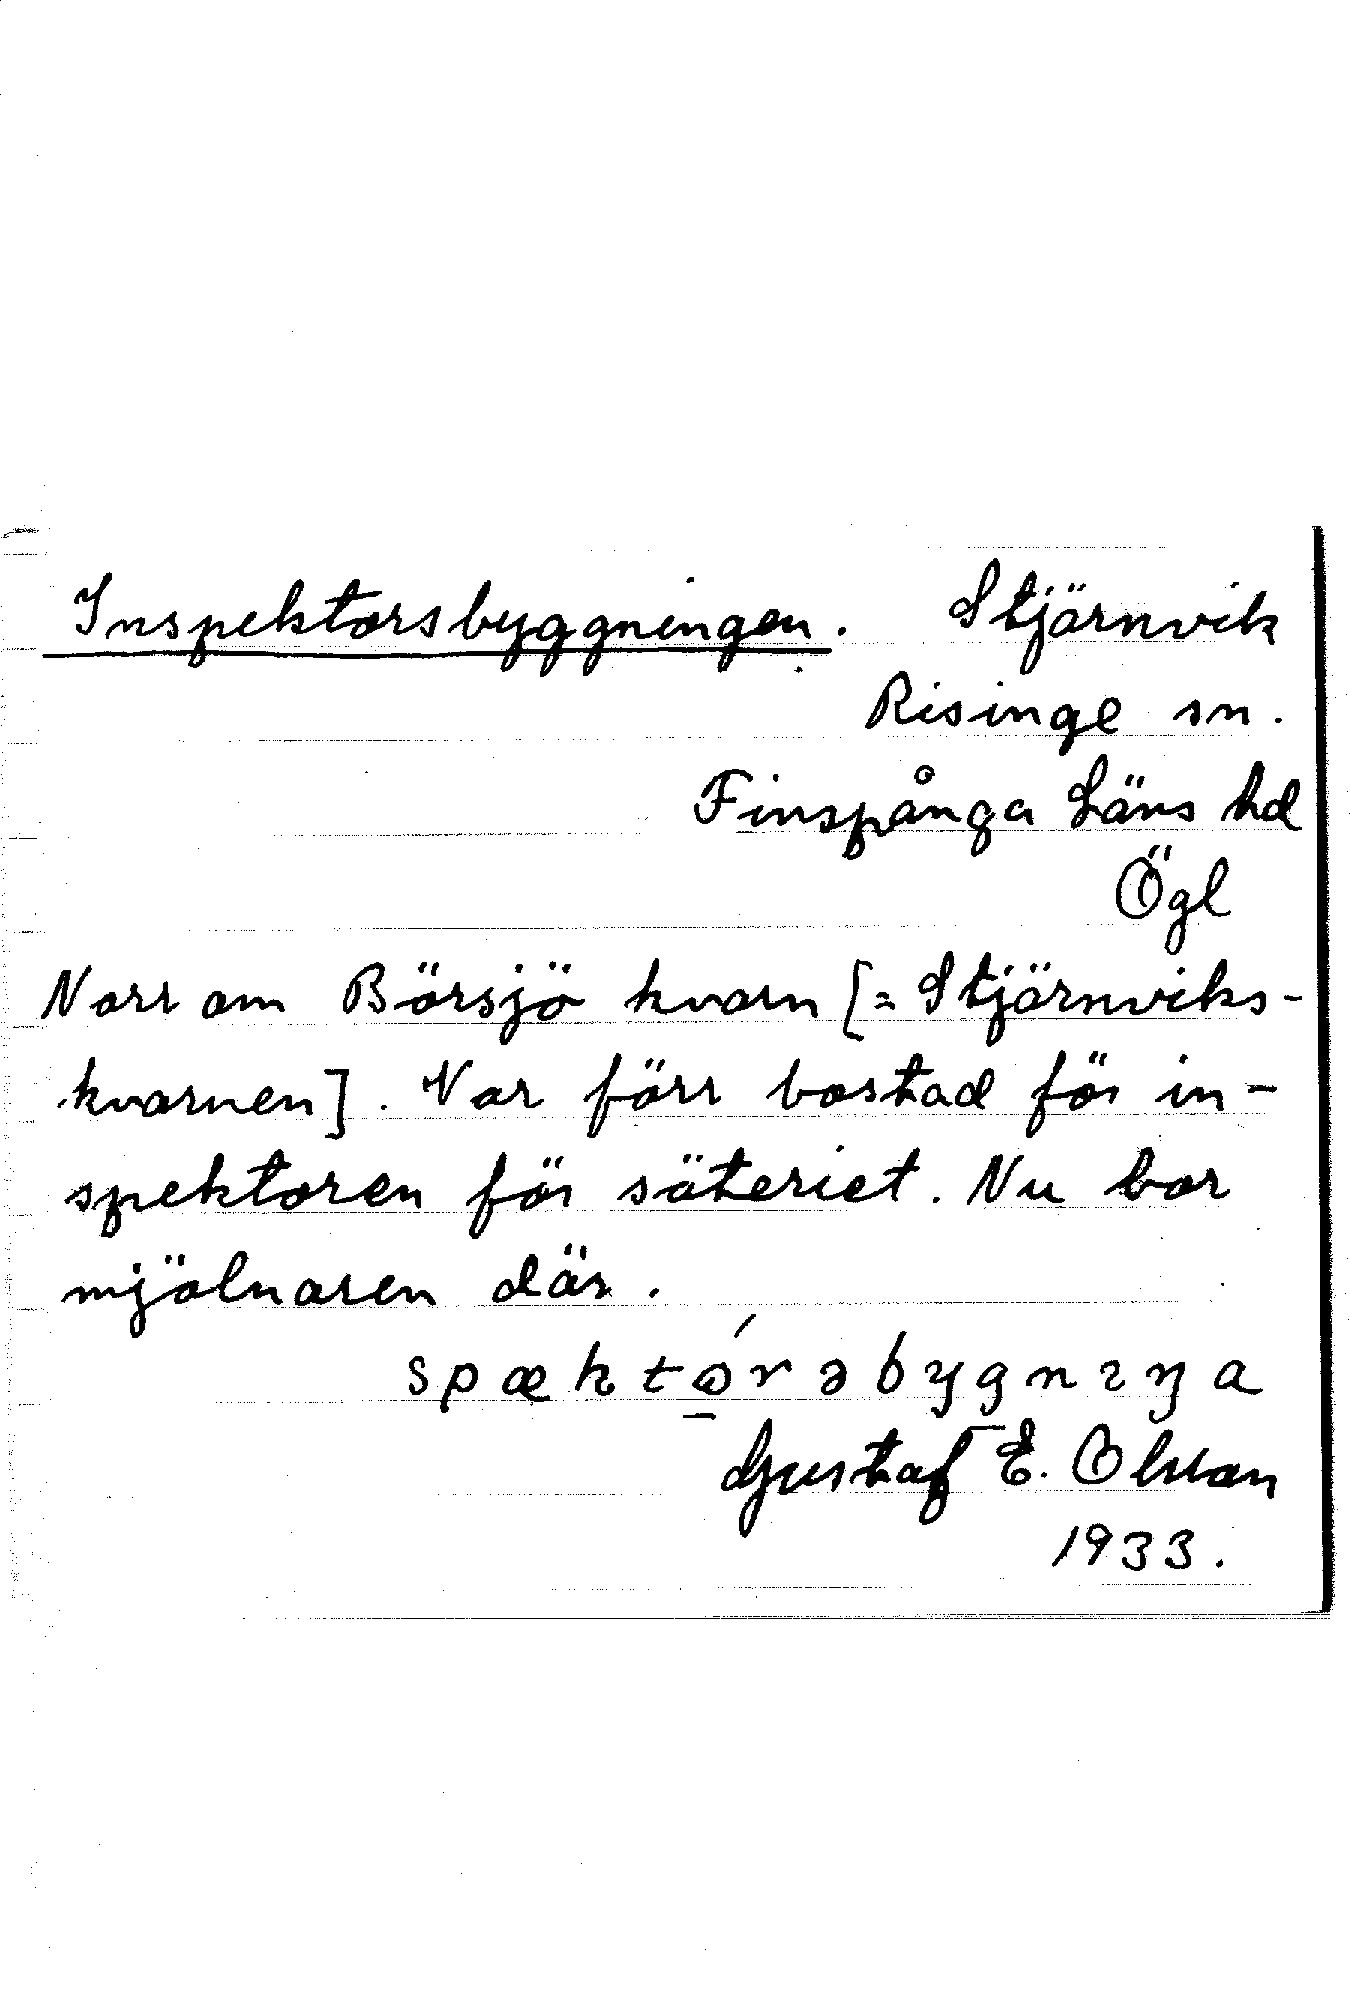 Inspektorsbyggningen. Stjärnvik
Risinge sn.
Finspånga Läns hd
Ögl
Norr om Börsjö kvarn [= Stjärnviks-
kvarnen]. Var förr bostad för in-
spektoren för säteriet. Nu bor
mjölnaren där.
spæktórəbygnıŋa
Gustaf E. Olsson
1933.